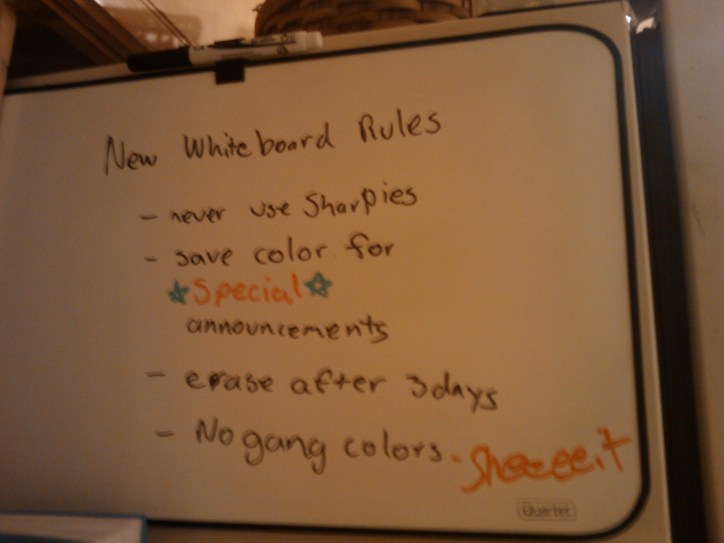 New Whiteboard Rules
- never use Sharpies
- save color for
☆Special☆
announcements
- erase after 3 days
- No gang colors. Sheeeeit
Quartet